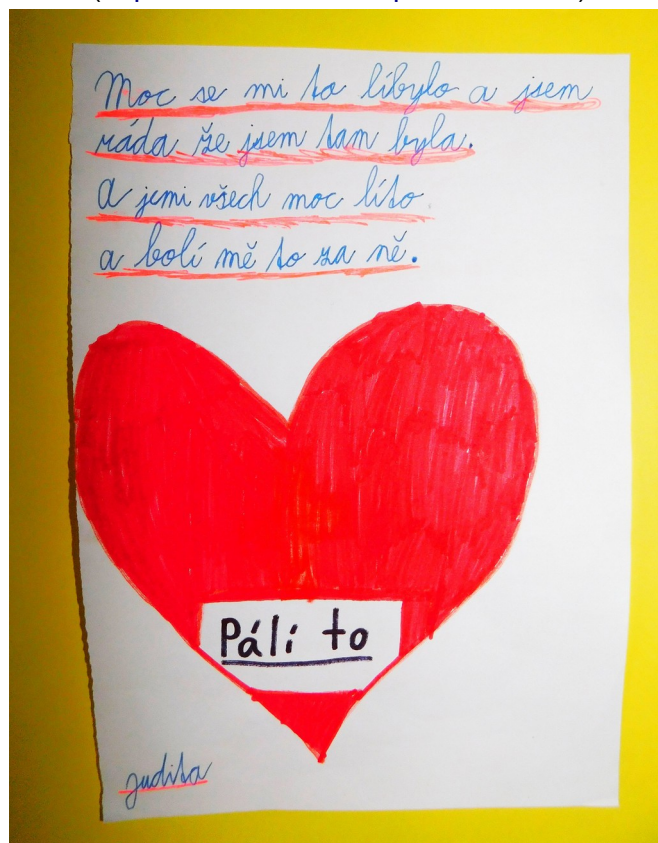 Moc se mi to líbylo a jsem
ráda že jsem tam byla.
A jemi všech moc líto
a bolí mě to za ně.
Pálí to
judita